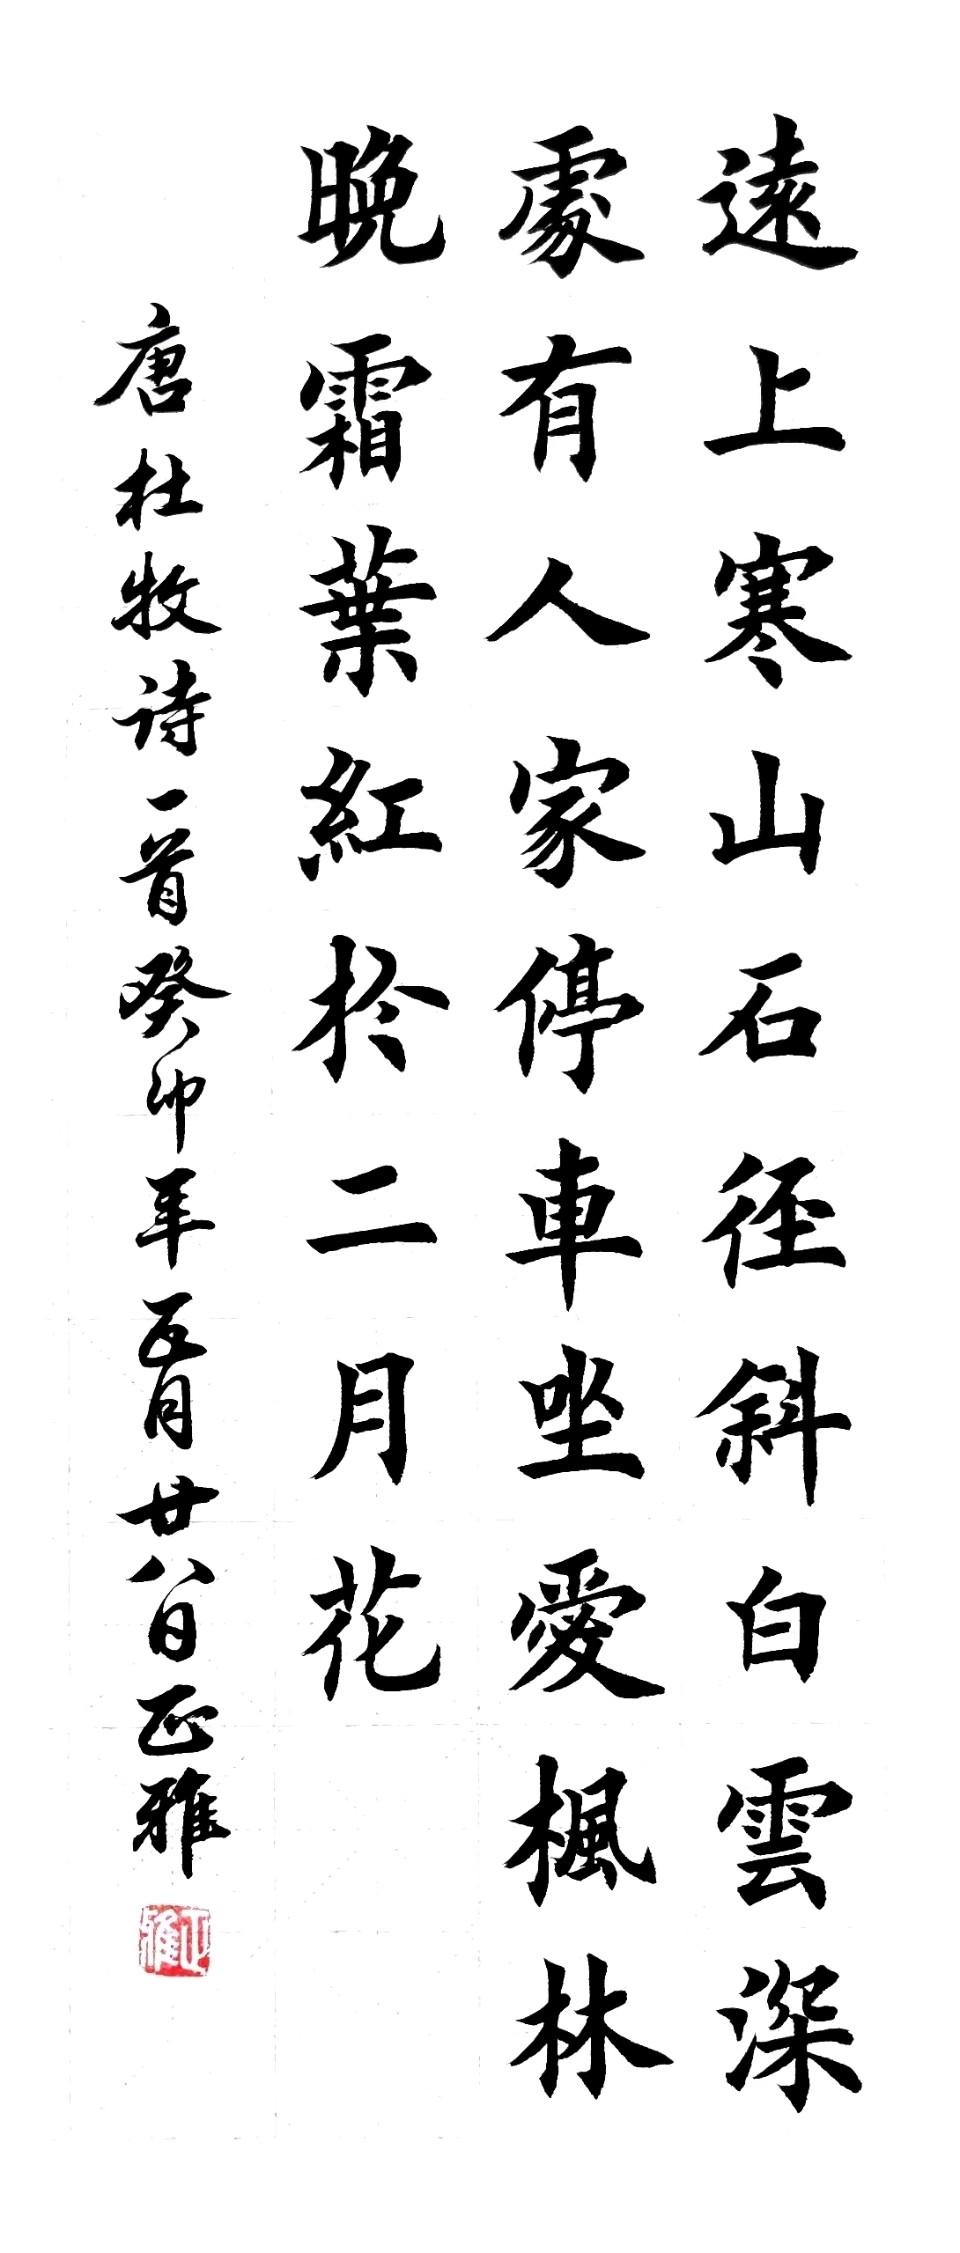 遠上寒山石径斜白雲深
處有人家停車坐愛楓林
晚霜葉紅於二月花
唐杜牧诗一首癸卯年五月廿八日正雅
正雅